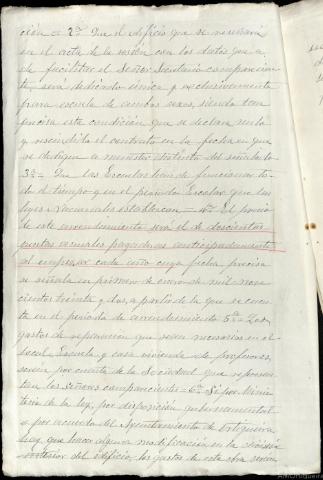 ción = 2ª Que el edificio que se reseñará
en el acta de la sesión con los datos que a
de facilitar el Señor Secretario comparecien
te, será dedicado única y exclusivamente
para escuela de ambos sexos, siendo tan
precisa esta condición que se declara nulo
y rescindido el contrato en la fecha en que
se dedique a menester distinto del señalado
3ª = Que las Escuelas han de funcionar to-
do el tiempo y en el período Escolar que las
leyes = vacacionales establezcan = 4ª El precio
de este arrendamiento será el de doscientas
cuntas anuales pagaderas anticipadamente
al empezar cada año cuya fecha precisa
se señala en primero de enero de mil nove
cientos treinta y dos, a partir de la que se cuen
ta en el período de arrendamiento 5ª = Los
gastos de reparación que sean necesarios en el
local Escuela y casa vivienda de profesores,
serán por cuenta de la Sociedad que repre-
sentan los señores comparecientes = 6ª Si por Minis
terio de la ley, por disposición gubernamental
o por acuerdo del Ayuntamiento de Ortigueira
hay que hacer alguna modificación en la división
interior del edificio, los gastos de esta obra serán